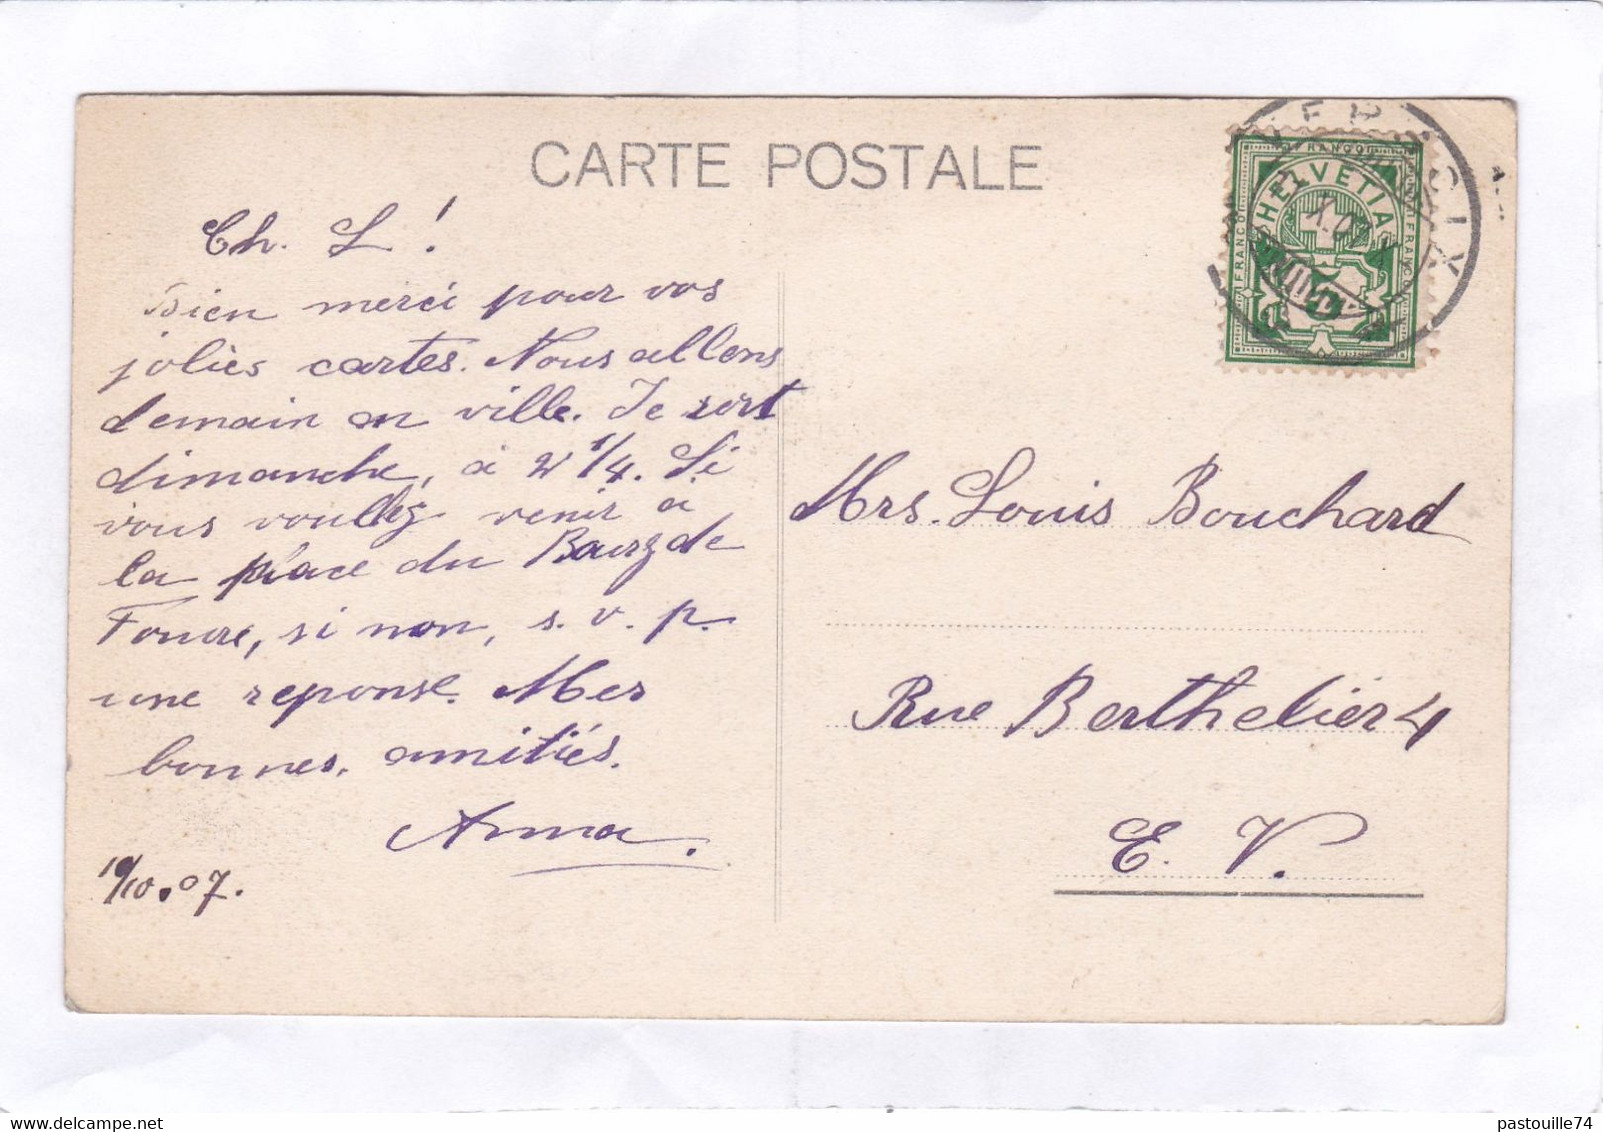 CARTE POSTALE
FRANCO
HELVETIA
FRANCO
FRANCO
5
X.07
Ch. L !
Bien merci pour vos
jolies cartes. Nous allons
demain en ville. Je sort
dimanche, à 2 1/4. Si
vous voullez venir à
la place du Bourg de
Fouure, si non, s. v. p.
une reponse. Mes
bonnes. amitiés.
Anna.
19/10.07.
Mrs. Louis Bouchard
Rue Berthelier 4
E. V.
pastouille74